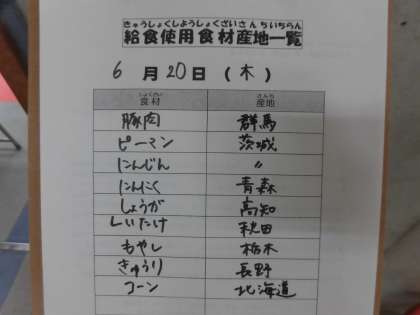 きゅうしょくしようしょくざいさんちいちらん
給食使用食材産地一覧
6月20日(木)
しょくざい さんち
食材 産地
豚肉 群馬
ピーマン 茨城
にんじん 〃
にんにく 青森
しょうが 高知
しいたけ 秋田
もやし 栃木
きゅうり 長野
コーン 北海道